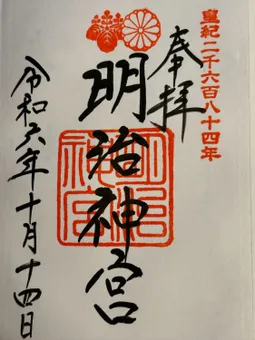 皇紀二千六百八十四年
奉拝
明治神宮
令和六年十月十四日